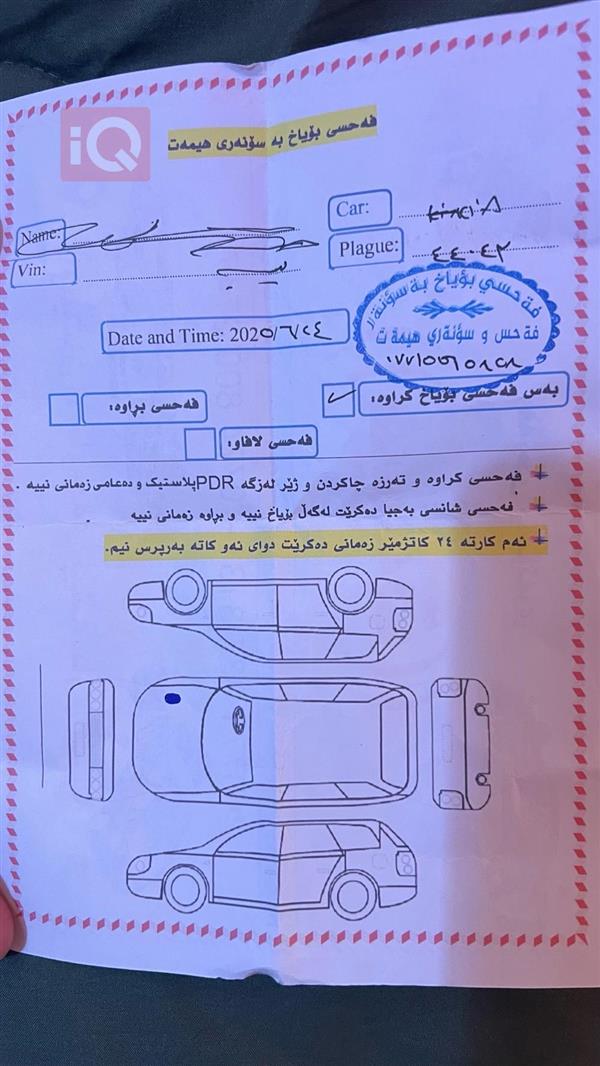 iQ
فەحسی بۆیاخ بە سۆنەری هیمەت
Name:
Car:
Vin:
Plague: ٤٤٠٤٢
فەحسي بۆیاخ بە سۆنەر
فەحس و سۆنەري هیمەت
Date and Time: 202٥/٦/٢٤
بەس فەحسی بۆیاخ کراوە: ✓
فەحسی براوە:
فەحسی لافاو:
فەحسی کراوە و تەرزە چاکردن و ژێر لەزگە PDR پلاستیک و دەعامی زەمانی نییە .
فەحسی شانسی بەجیا دەکرێت لەگەڵ بۆیاخ نییە و براوە زەمانی نییە
ئەم کارتە ٢٤ کاتژمێر زەمانی دەکرێت دوای ئەو کاتە بەرپرس نیم.